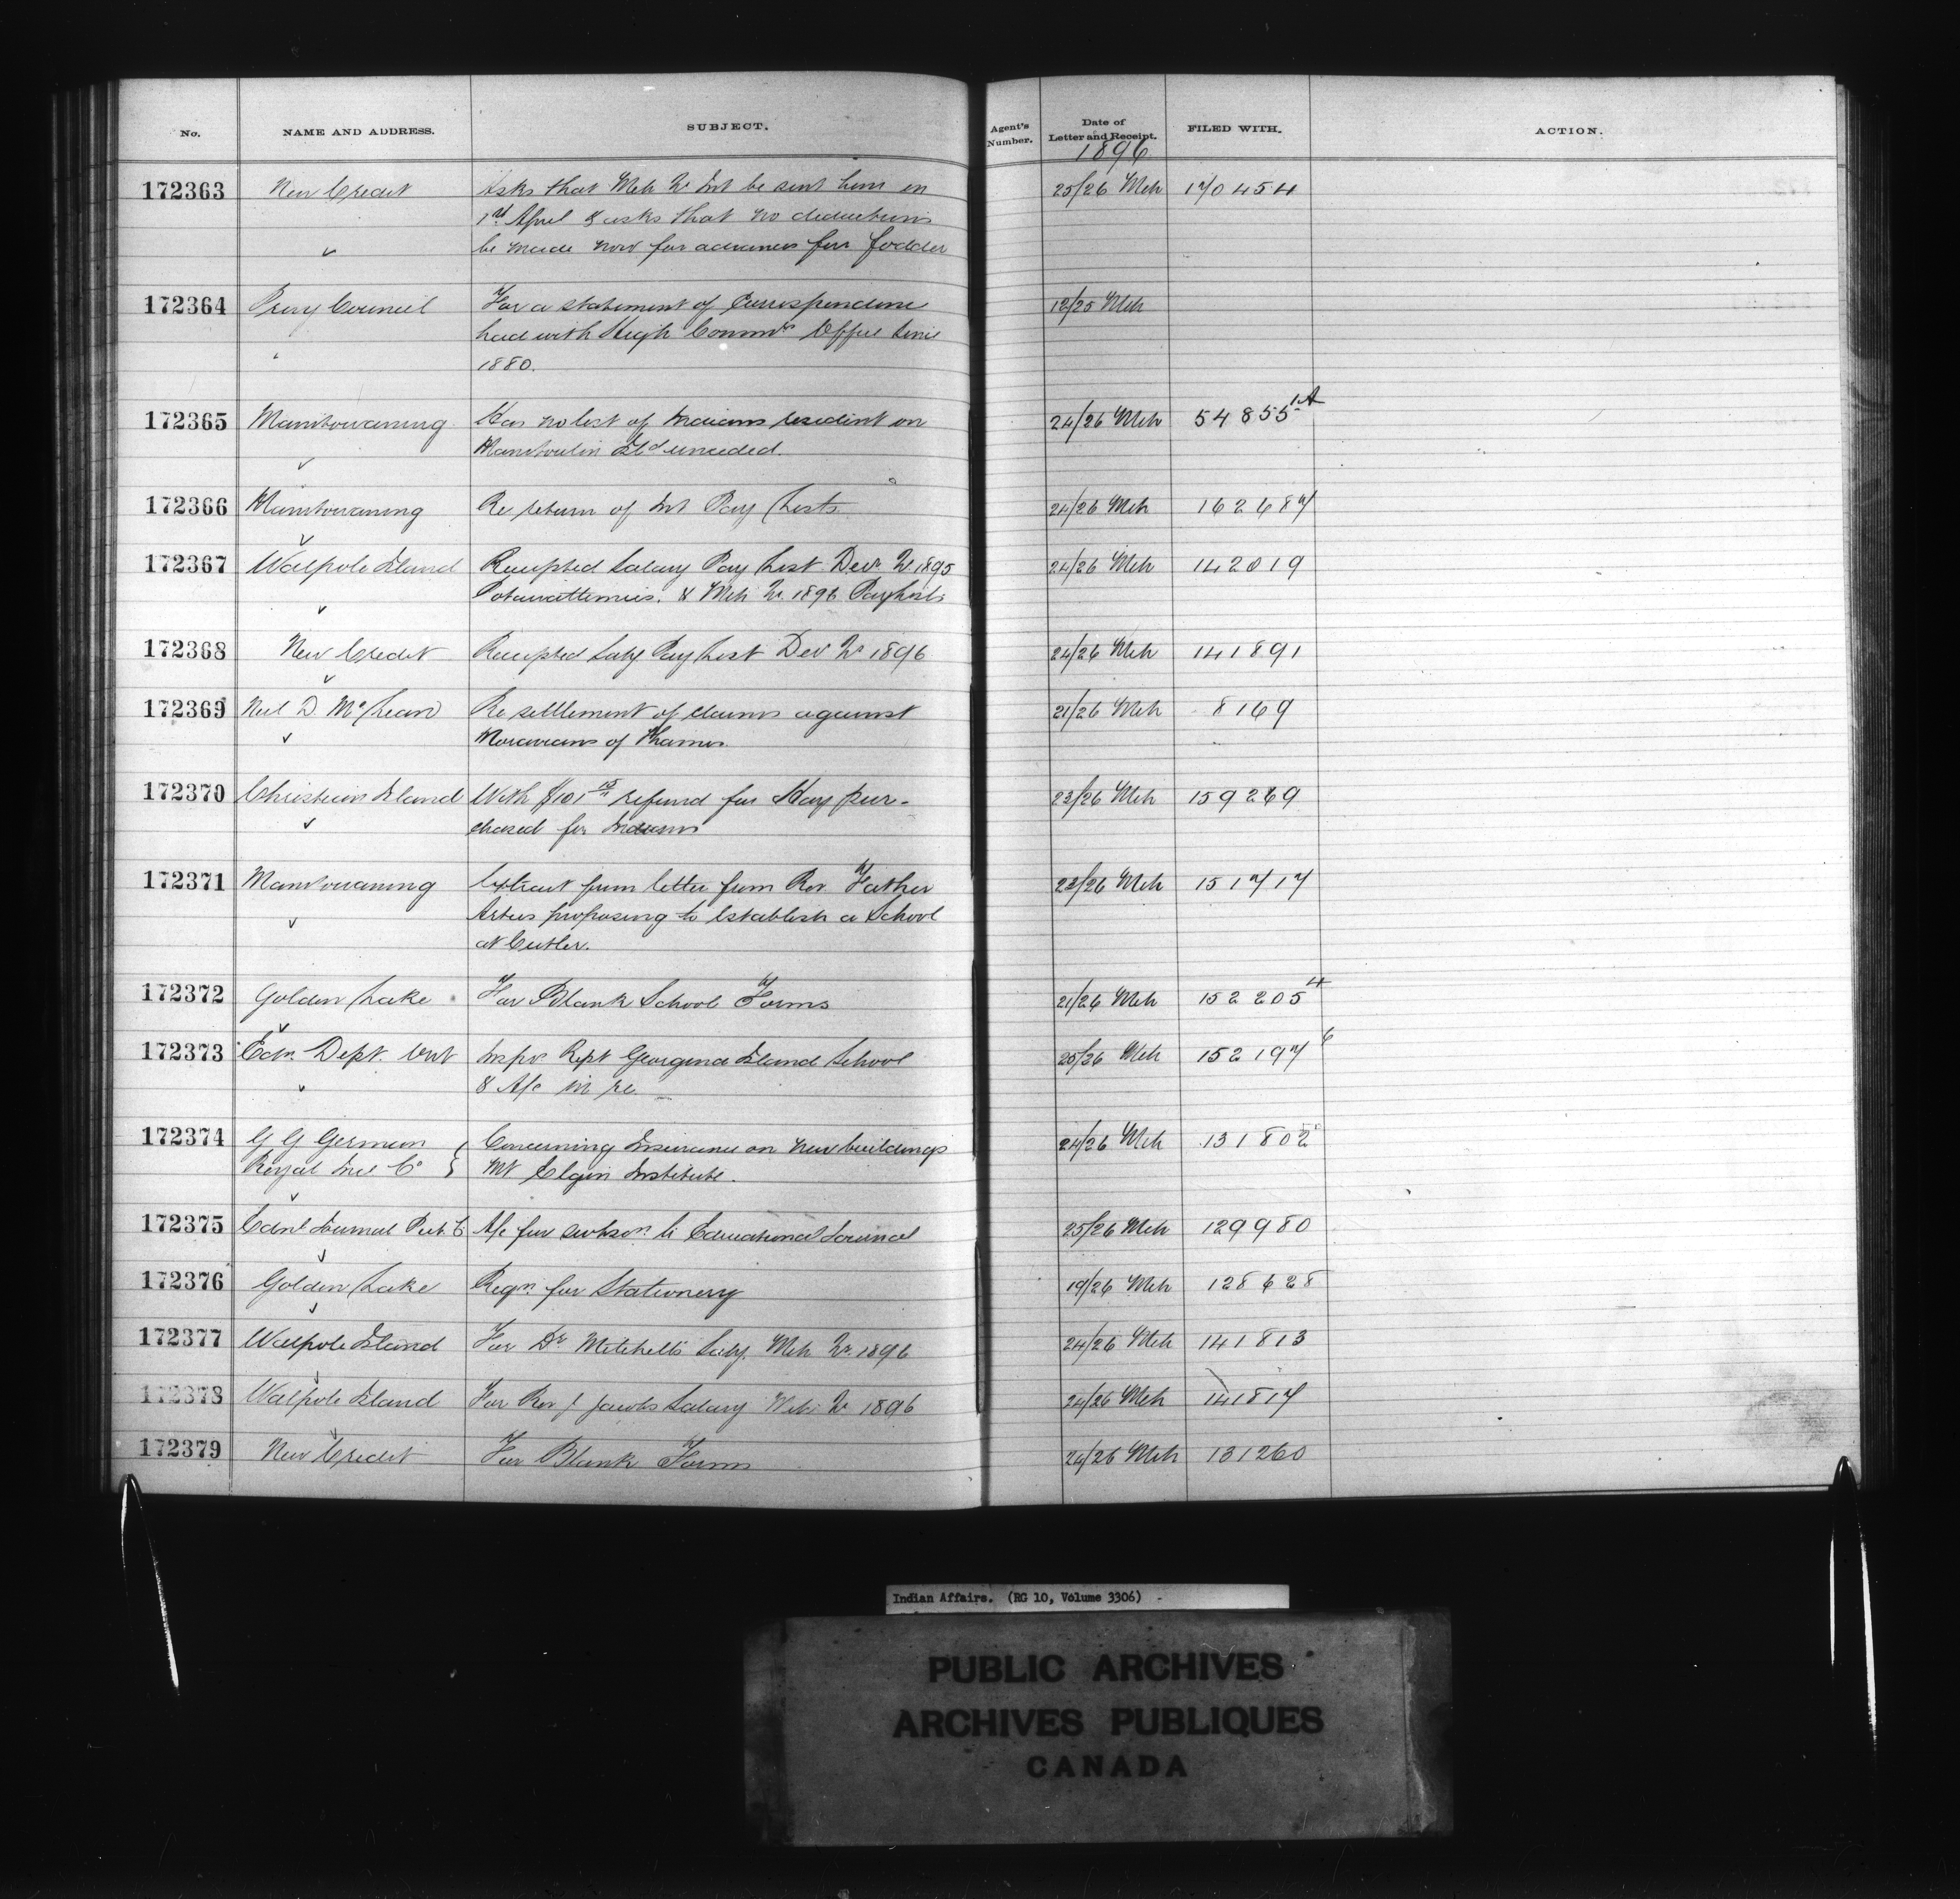 No. NAME AND ADDRESS. SUBJECT. Agent's Number. Date of Letter and Receipt. FILED WITH. ACTION.
1896
172363 New Credit Asks that Mch Qr Int be sent him on 25/26 Mch 170454
1st April & asks that no deductions
be made now for advances for fodder
172364 Privy Council For a statement of Correspondence 12/25 Mch
had with High Commrs Office since
1880.
172365 Manitowaning Has no list of Indians resident on 24/26 Mch 54855 1A
Manitoulin Isld unceded.
172366 Manitowaning Re return of Int Pay Lists 24/26 Mch 162687
172367 Walpole Island Receipted Salary Pay List Decr Qr 1895 24/26 Mch 142019
Potawattemies. & Mch Qr. 1896 Paylists
172368 New Credit Receipted Saly Pay List Dec Qr 1896 24/26 Mch 141891
172369 Neil D. McLean Re settlement of claims against 21/26 Mch 8169
Moravians of Thames.
172370 Christian Island With $101 15 refund for Hay pur- 23/26 Mch 159269
chased for Indians
172371 Manitowaning Extract from letter from Rev Father 23/26 Mch 151717
Artus proposing to establish a School
at Cutler.
172372 Golden Lake For Blank School Forms 21/26 Mch 152205 4
172373 Edn. Dept. Ont Insprs Rept Georgina Island School 25/26 Mch 152197 6
& A/c in re.
172374 G G German Concerning Insurance on new buildings 24/26 Mch 131802
Royal Ins Co Mt Elgin Institute.
172375 Ednl Journal Pub. Co A/c for subson. to Educational Journal 25/26 Mch 129980
172376 Golden Lake Reqn. for Stationery 19/26 Mch 128628
172377 Walpole Island For Dr Mitchell's Saly. Mch Qr. 1896 24/26 Mch 141813
172378 Walpole Island For Rev J Jacobs Salary Mch Qr 1896 24/26 Mch 141817
172379 New Credit For Blank Forms 24/26 Mch 131260
Indian Affairs. (RG 10, Volume 3306)
PUBLIC ARCHIVES
ARCHIVES PUBLIQUES
CANADA